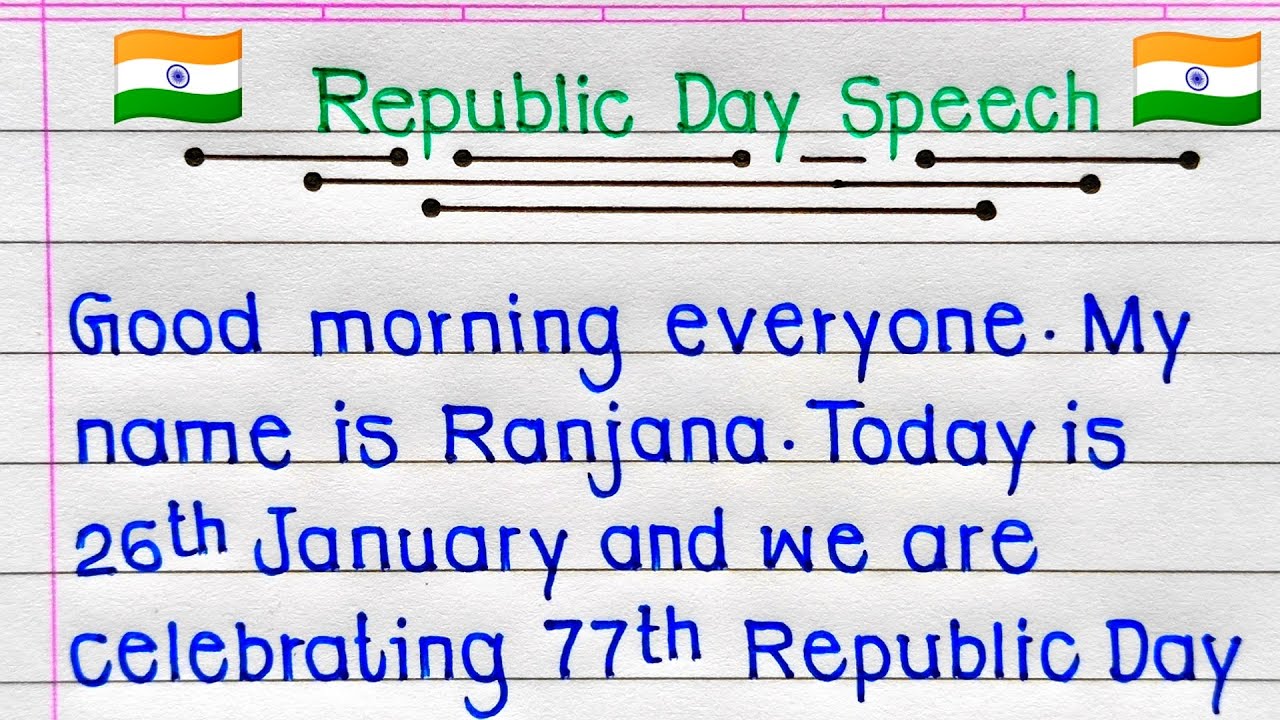 Republic Day Speech
Good morning everyone. My
name is Ranjana. Today is
26th January and we are
celebrating 77th Republic Day